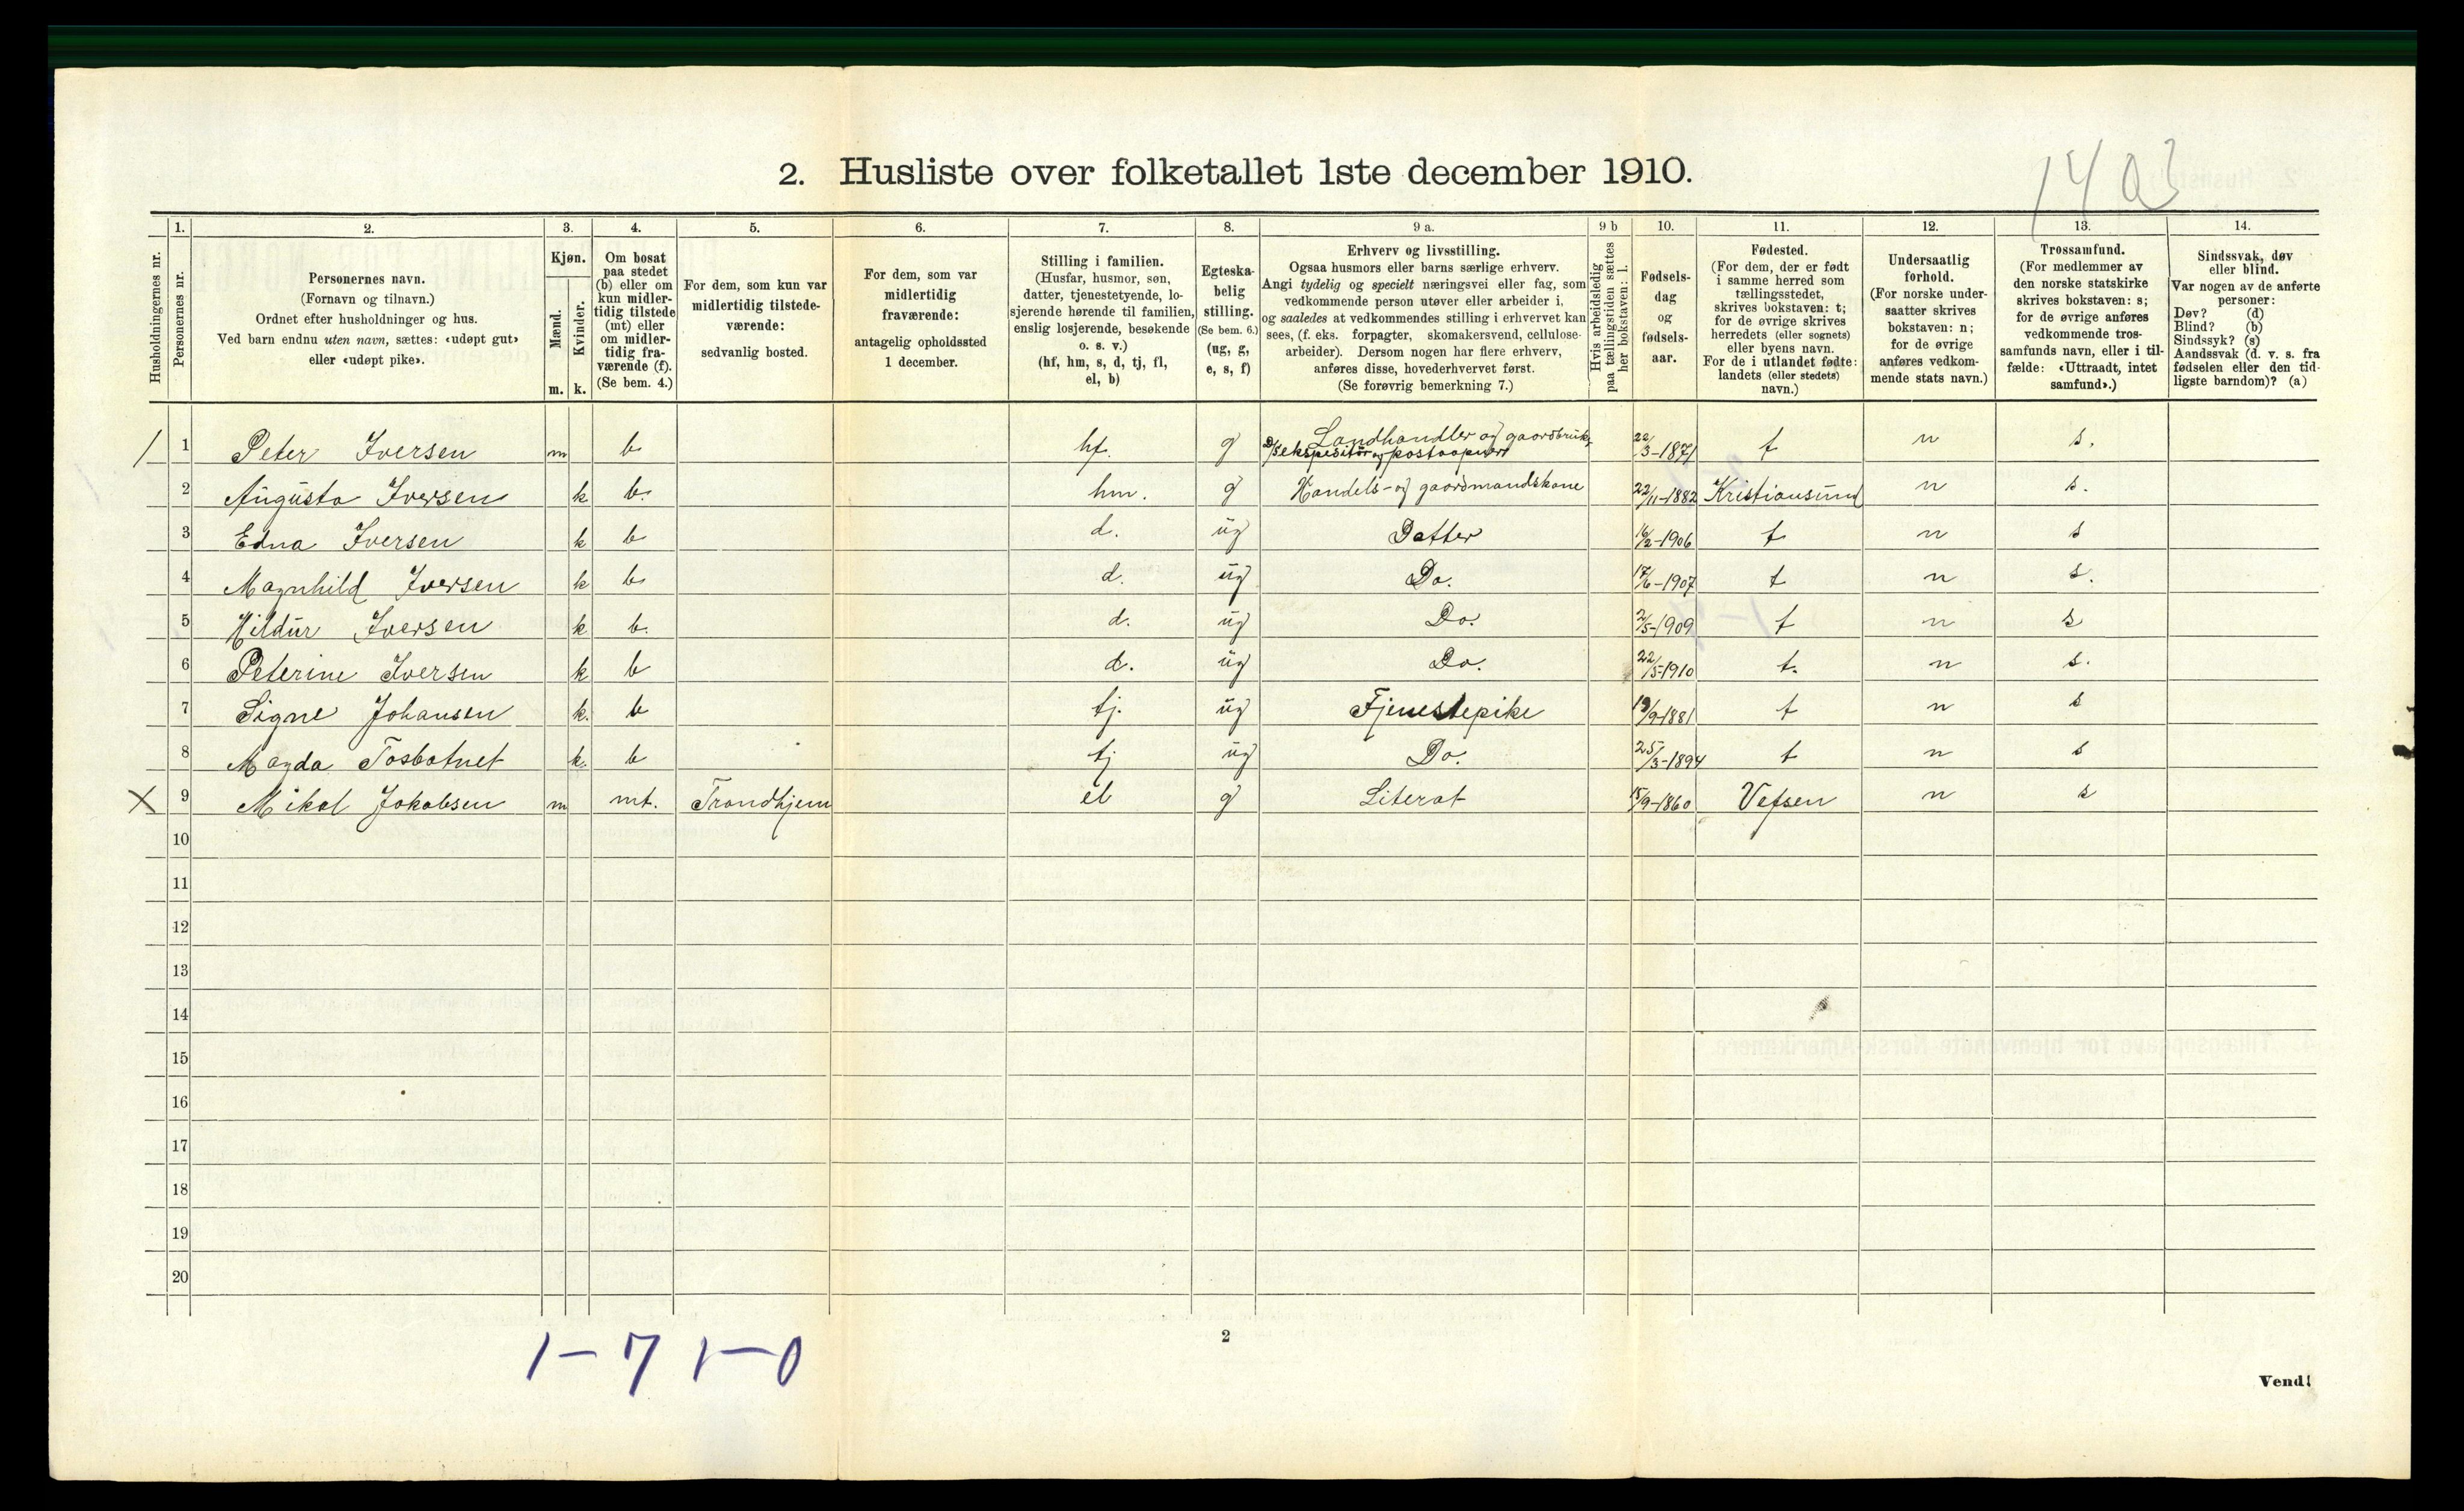 1403
2. Husliste over folketallet 1ste december 1910.
Husholdningernes nr.
1. Personernes nr.
2.
Personernes navn.
(Fornavn og tilnavn.)
Ordnet efter husholdninger og hus.
Ved barn endnu uten navn, sættes: «udøpt gut»
eller «udøpt pike».
3.
Kjøn.
Mænd. Kvinder.
m. k.
4.
Om bosat
paa stedet
(b) eller om
kun midler-
tidig tilstede
(mt) eller
om midler-
tidig fra-
værende (f).
(Se bem. 4.)
5.
For dem, som kun var
midlertidig tilstede-
værende:
sedvanlig bosted.
6.
For dem, som var
midlertidig
fraværende:
antagelig opholdssted
1 december.
7.
Stilling i familien.
(Husfar, husmor, søn,
datter, tjenestetyende, lo-
sjerende hørende til familien,
enslig losjerende, besøkende
o. s. v.)
(hf, hm, s, d, tj, fl,
el, b)
8.
Egteska-
belig
stilling.
(Se bem. 6.)
(ug, g,
e, s, f)
9 a.
Erhverv og livsstilling.
Ogsaa husmors eller barns særlige erhverv.
Angi tydelig og specielt næringsvei eller fag, som
vedkommende person utøver eller arbeider i,
og saaledes at vedkommendes stilling i erhvervet kan
sees, (f. eks. forpagter, skomakersvend, cellulose-
arbeider). Dersom nogen har flere erhverv,
anføres disse, hovederhvervet først.
(Se forøvrig bemerkning 7.)
9 b
Hvis arbeidsledig
paa tællingstiden sættes
her bokstaven: l.
10.
Fødsels-
dag
og
fødsels-
aar.
11.
Fødested.
(For dem, der er født
i samme herred som
tællingsstedet,
skrives bokstaven: t;
for de øvrige skrives
herredets (eller sognets)
eller byens navn.
For de i utlandet fødte:
landets (eller stedets)
navn.)
12.
Undersaatlig
forhold.
(For norske under-
saatter skrives
bokstaven: n;
for de øvrige
anføres vedkom-
mende stats navn.)
13.
Trossamfund.
(For medlemmer av
den norske statskirke
skrives bokstaven: s;
for de øvrige anføres
vedkommende tros-
samfunds navn, eller i til-
fælde: «Uttraadt, intet
samfund».)
14.
Sindssvak, døv
eller blind.
Var nogen av de anførte
personer:
Døv? (d)
Blind? (b)
Sindssyk? (s)
Aandssvak (d. v. s. fra
fødselen eller den tid-
ligste barndom)? (a)
/ 1 Peter Iversen m b hf. g Landhandler og gaardbruk. D/S ekspeditör og postaapner 22/3-1871 t n s.
2 Augusta Iversen k b. hm. g Handels- og gaardmandskone 22/11-1882 Kristiansund n s.
3 Edna Iversen k b d. ug Datter 16/2-1906 t n s
4 Magnhild Iversen k b d. ug Do. 17/6-1907 t n s.
5 Hildur Iversen k b. d. ug Do. 2/5-1909 t n s
6 Peterine Iversen k b d. ug Do. 22/5-1910 t. n s.
7 Signe Johansen k. b tj. ug Tjenestepike 19/9-1881 t n s
8 Magda Tosbotnet k. b tj ug Do. 25/3-1894 t n s
X 9 Mikal Jakobsen m mt. Trondhjem el g Literat 15/9-1860 Vefsen n s
10
11
12
13
14
15
16
17
18
19
20
1-7 1-0
2
Vend!